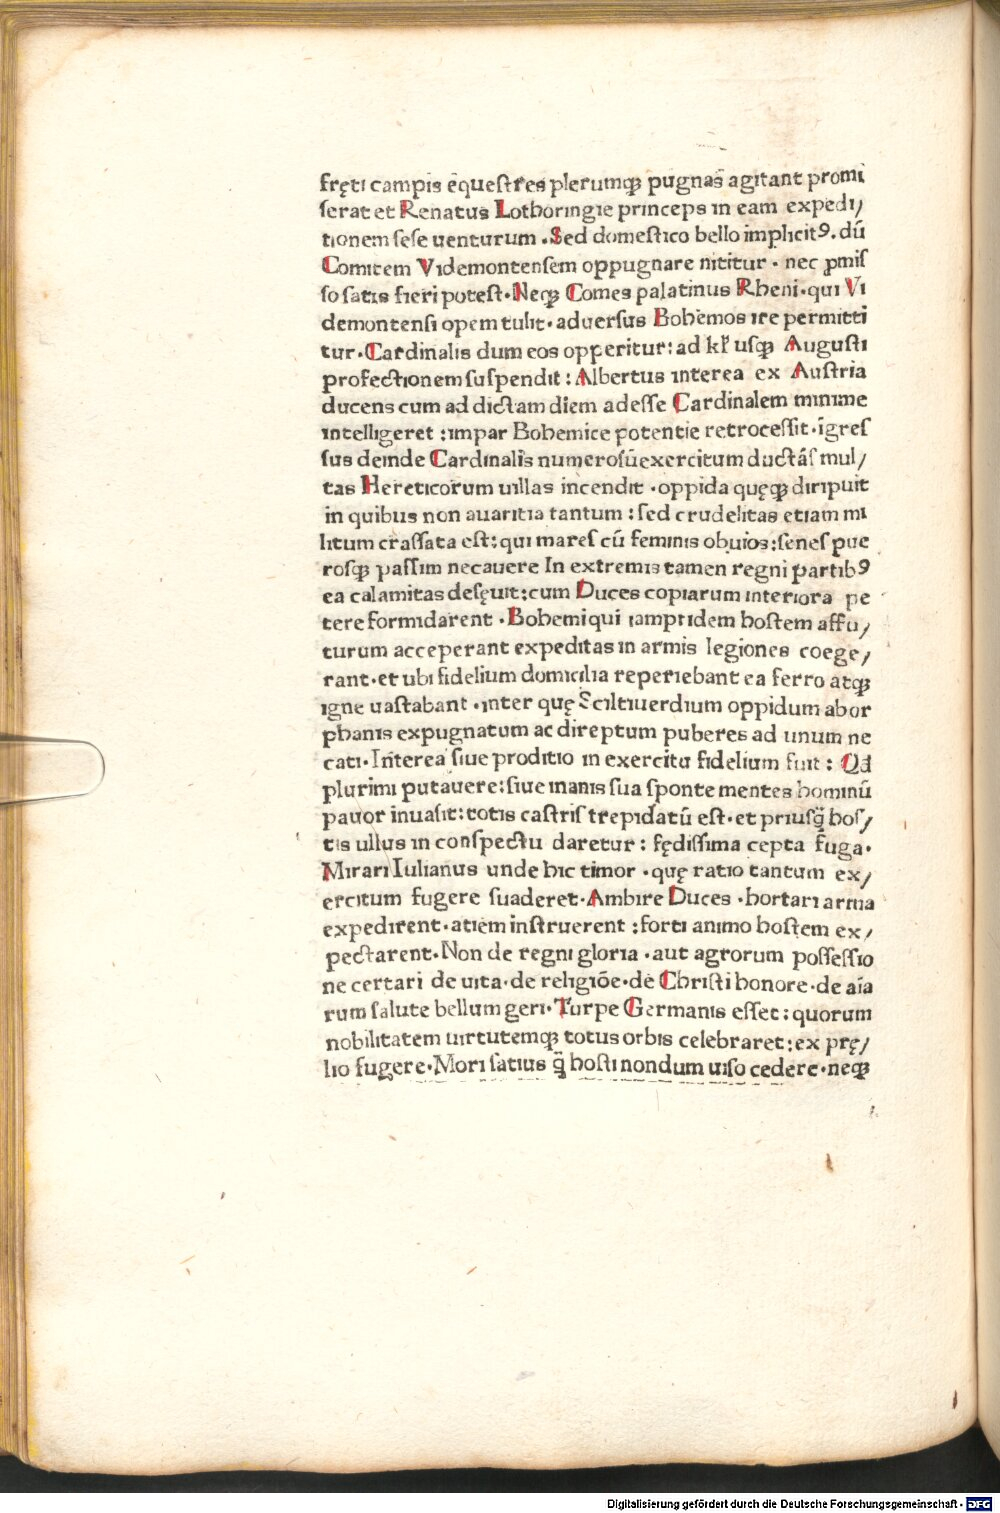 fręti campis equeſtres plerumqꝫ pugnas agitant promi
ſerat et Renatus Lothoringie princeps in eam expedi/
tionem ſeſe uenturum . Sed domeſtico bello implicitꝰ. dū
Comitem Videmontenſem oppugnare nititur . nec ꝓmiſ
ſo ſatis fieri poteſt . Neqꝫ Comes palatinus Rheni . qui Vi
demontenſi opem tulit . aduerſus Bohemos ire permitti
tur . Cardinalis dum eos opperitur : ad kł uſqꝫ Auguſti
profectionem ſuſpendit : Albertus interea ex Auſtria
ducens cum ad dictam diem adeſſe Cardinalem minime
intelligeret : impar Bohemice potentie retroceſſit . īgreſ
ſus deinde Cardinalis numeroſū exercitum ductāſ mul/
tas Hereticorum uillas incendit . oppida quęqꝫ diripuit
in quibus non auaritia tantum : ſed crudelitas etiam mi
litum craſſata eſt : qui mareſ cū feminis obuios : ſeneſ pue
roſqꝫ paſſim necauere In extremis tamen regni partibꝰ
ea calamitas deſęuit : cum Duces copiarum interiora pe
tere formidarent . Bohemi qui iampridem hoſtem affu/
turum acceperant expeditas in armis legiones coege/
rant . et ubi fidelium domicilia reperiebant ea ferro atqꝫ
igne uaſtabant . inter quę Sciltiuerdium oppidum abor
phanis expugnatum ac direptum puberes ad unum ne
cati . Interea ſiue proditio in exercitu fidelium fuit : Qd
plurimi putauere : ſiue inanis ſua ſponte mentes hominū
pauor inuaſit : totis caſtriſ trepidatū eſt . et priuſq̄ hoſ/
tis ullus in conſpectu daretur : fędiſſima cepta fuga .
Mirari Iulianus unde hic timor . quę ratio tantum ex/
ercitum fugere ſuaderet . Ambire Duces . hortari arma
expedirent . atiem inſtruerent : forti animo hoſtem ex/
pectarent . Non de regni gloria . aut agrorum poſſeſſio
ne certari de uita . de religiōe . de Chriſti honore . de aīa
rum ſalute bellum geri . Turpe Germanis eſſet : quorum
nobilitatem uirtutemqꝫ totus orbis celebraret : ex prę/
lio fugere . Mori ſatius q̄ hoſti nondum uiſo cedere . neqꝫ
Digitalisierung gefördert durch die Deutsche Forschungsgemeinschaft - DFG